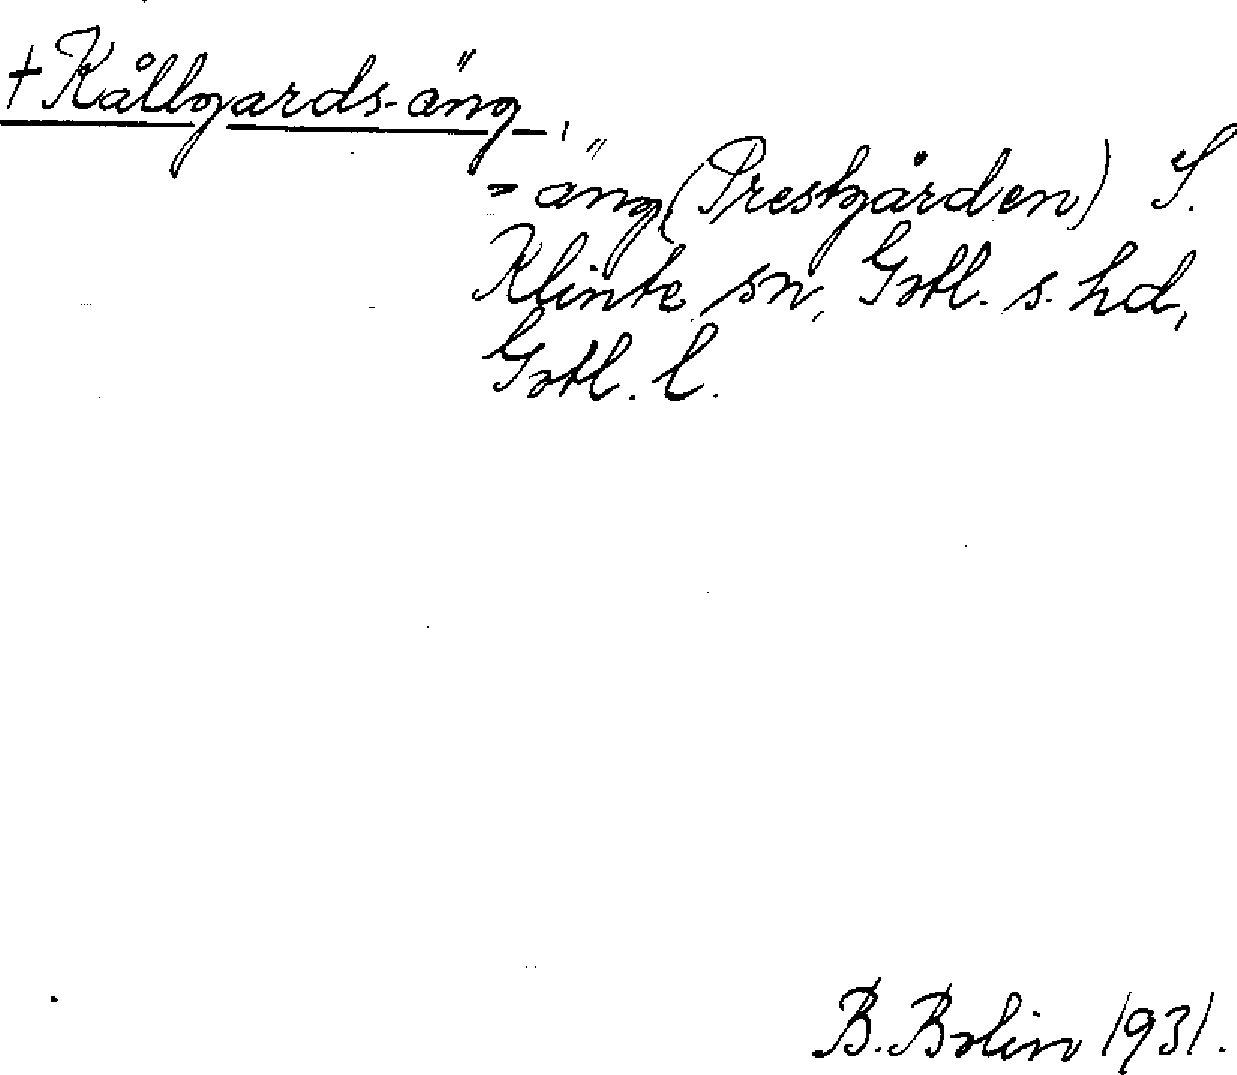 + Kålbgards-äng,
= äng (Prestgården) S.
Klinte sn, Gotl. s. hd,
Gotl. l.
B. Bolin 1931.